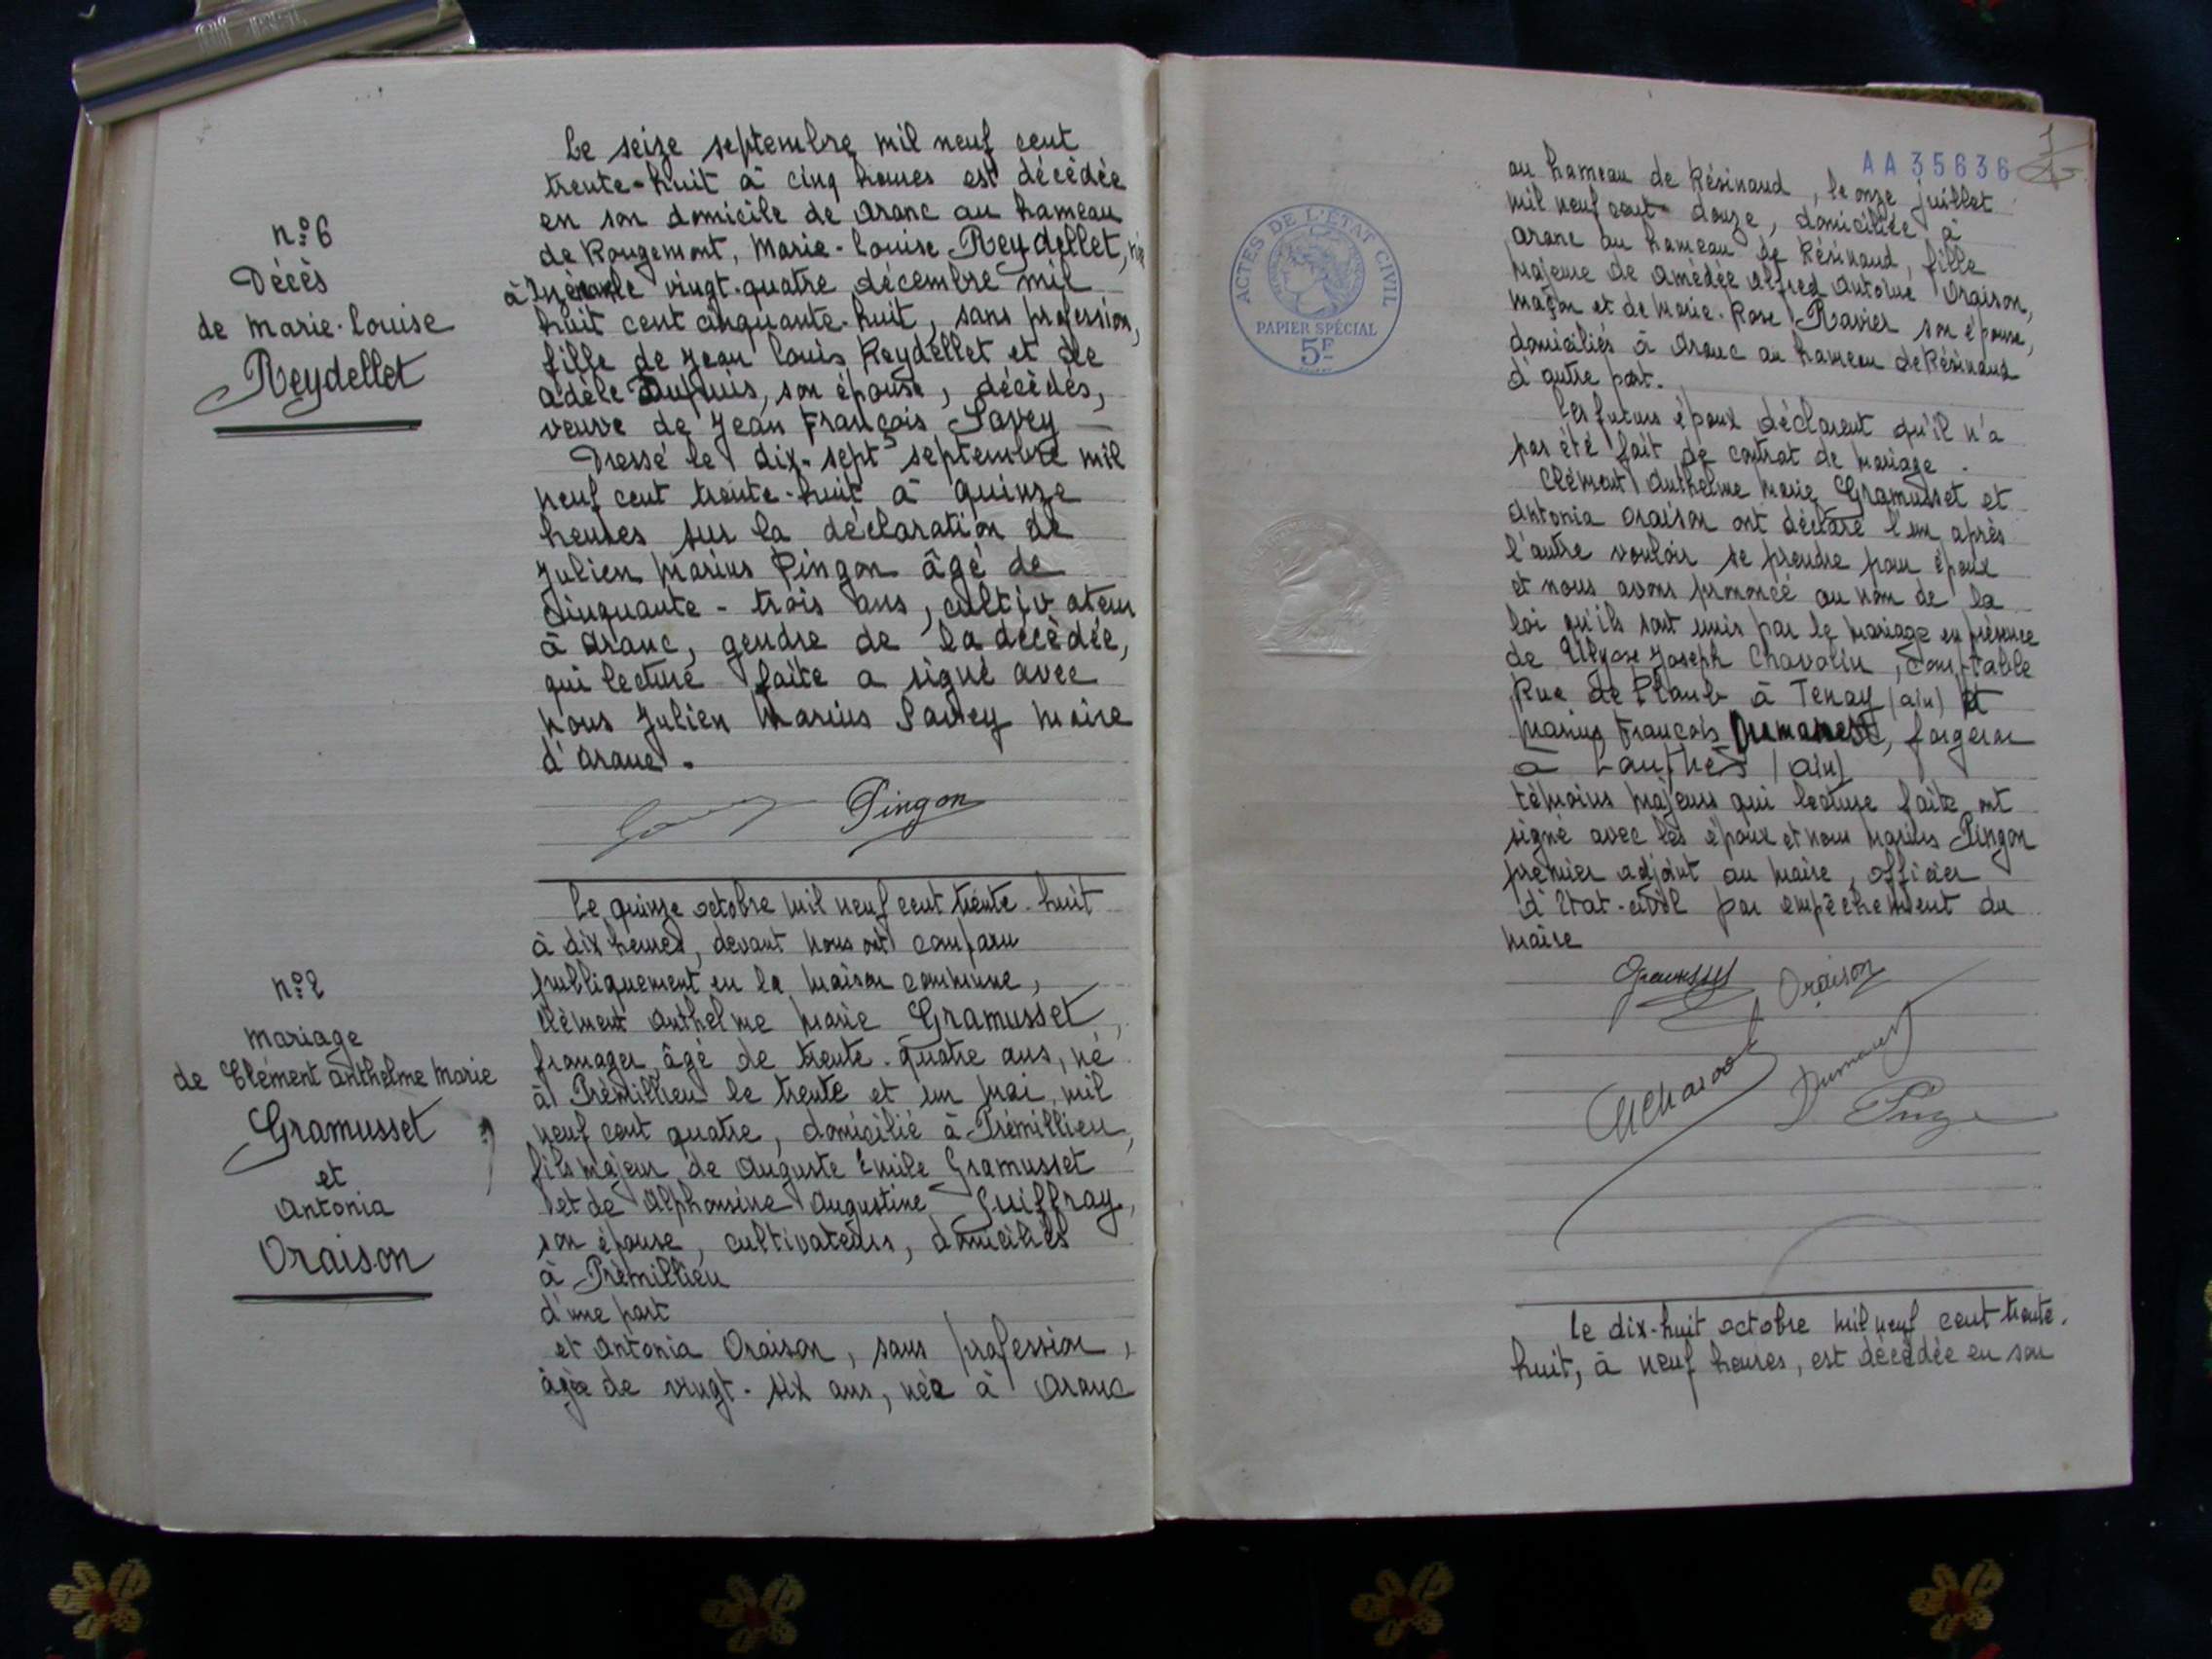 n° 6
Décès
de Marie-Louise
Reydellet
Le seize septembre mil neuf cent
trente-huit à cinq heures est décédée
en son domicile de Aranc au hameau
de Rougemont, Marie-Louise Reydellet, née
à le vingt-quatre décembre mil
huit cent cinquante-huit, sans profession,
fille de Jean Louis Reydellet et de
Adèle Dupuis, son épouse, décédés,
veuve de Jean François Savey
Dressé le dix-sept septembre mil
neuf cent trente-huit à quinze
heures sur la déclaration de
Julien Marius Pingon âgé de
cinquante-trois ans, cultivateur
à Aranc, gendre de la décédée,
qui lecture faite a signé avec
nous Julien Marius Savey maire
d'Aranc.
Pingon
n° 2
Mariage
de Clément Anthelme Marie
Gramusset
et
Antonia
Oraison
Le quinze octobre mil neuf cent trente-huit
à dix heures, devant nous ont comparu
publiquement en la maison commune,
Clément Anthelme Marie Gramusset,
fromager, âgé de trente-quatre ans, né
à Prémillieu le trente et un mai mil
neuf cent quatre, domicilié à Prémillieu,
fils majeur de Auguste Emile Gramusset
et de Alphonsine Augustine Guiffray,
son épouse, cultivateurs, domiciliés
à Prémillieu
d'une part
et Antonia Oraison, sans profession,
âgée de vingt-six ans, née à Aranc
AA 35636
ACTES DE L'ÉTAT CIVIL
PAPIER SPÉCIAL
5F
au hameau de Résinaud, le onze juillet
mil neuf cent douze, domiciliée à
Aranc au hameau de Résinaud, fille
majeure de Amédée Alfred Antoine Oraison,
maçon et de Marie-Rose Ravier son épouse,
domiciliés à Aranc au hameau de Résinaud
d'autre part.
Les futurs époux déclarent qu'il n'a
pas été fait de contrat de mariage.
Clément Anthelme Marie Gramusset et
Antonia Oraison ont déclaré l'un après
l'autre vouloir se prendre pour époux
et nous avons prononcé au nom de la
loi qu'ils sont unis par le mariage en présence
de Ulysse Joseph Chavolin, comptable
Rue de à Tenay (Ain) et
Marius François Dumarest, forgeron
à (Ain)
témoins majeurs qui lecture faite ont
signé avec les époux et nous Marius Pingon
premier adjoint au maire, officier
d'Etat-civil par empêchement du
maire
Oraison
Dumarest
Le dix-huit octobre mil neuf cent trente-
huit, à neuf heures, est décédée en son